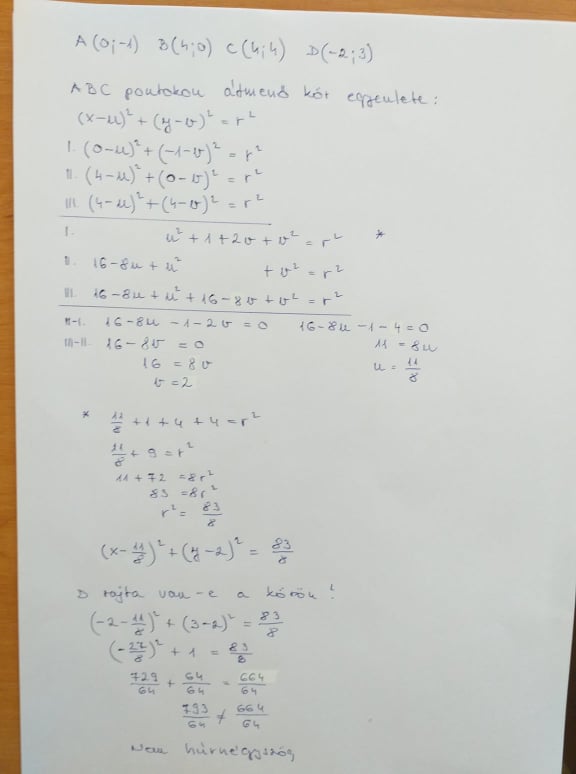 A(0;-1) B(4;0) C(4;4) D(-2;3)
ABC pontokon átmenő kör egyenlete:
(x-u)² + (y-v)² = r²
I. (0-u)² + (-1-v)² = r²
II. (4-u)² + (0-v)² = r²
III. (4-u)² + (4-v)² = r²
I. u² + 1 + 2v + v² = r² *
II. 16-8u + u² + v² = r²
III. 16-8u + u² + 16-8v + v² = r²
II-I. 16-8u -1-2v = 0 16-8u-1-4=0
III-II. 16-8v = 0 11 = 8u
16 = 8v u = 11/8
v = 2
* 11/8 + 1 + 4 + 4 = r²
11/8 + 9 = r²
11 + 72 = 8r²
83 = 8r²
r² = 83/8
(x - 11/8)² + (y-2)² = 83/8
D rajta van-e a körön?
(-2 - 11/8)² + (3-2)² = 83/8
(-27/8)² + 1 = 83/8
729/64 + 64/64 = 664/64
793/64 ≠ 664/64
Nem húrnégyszög